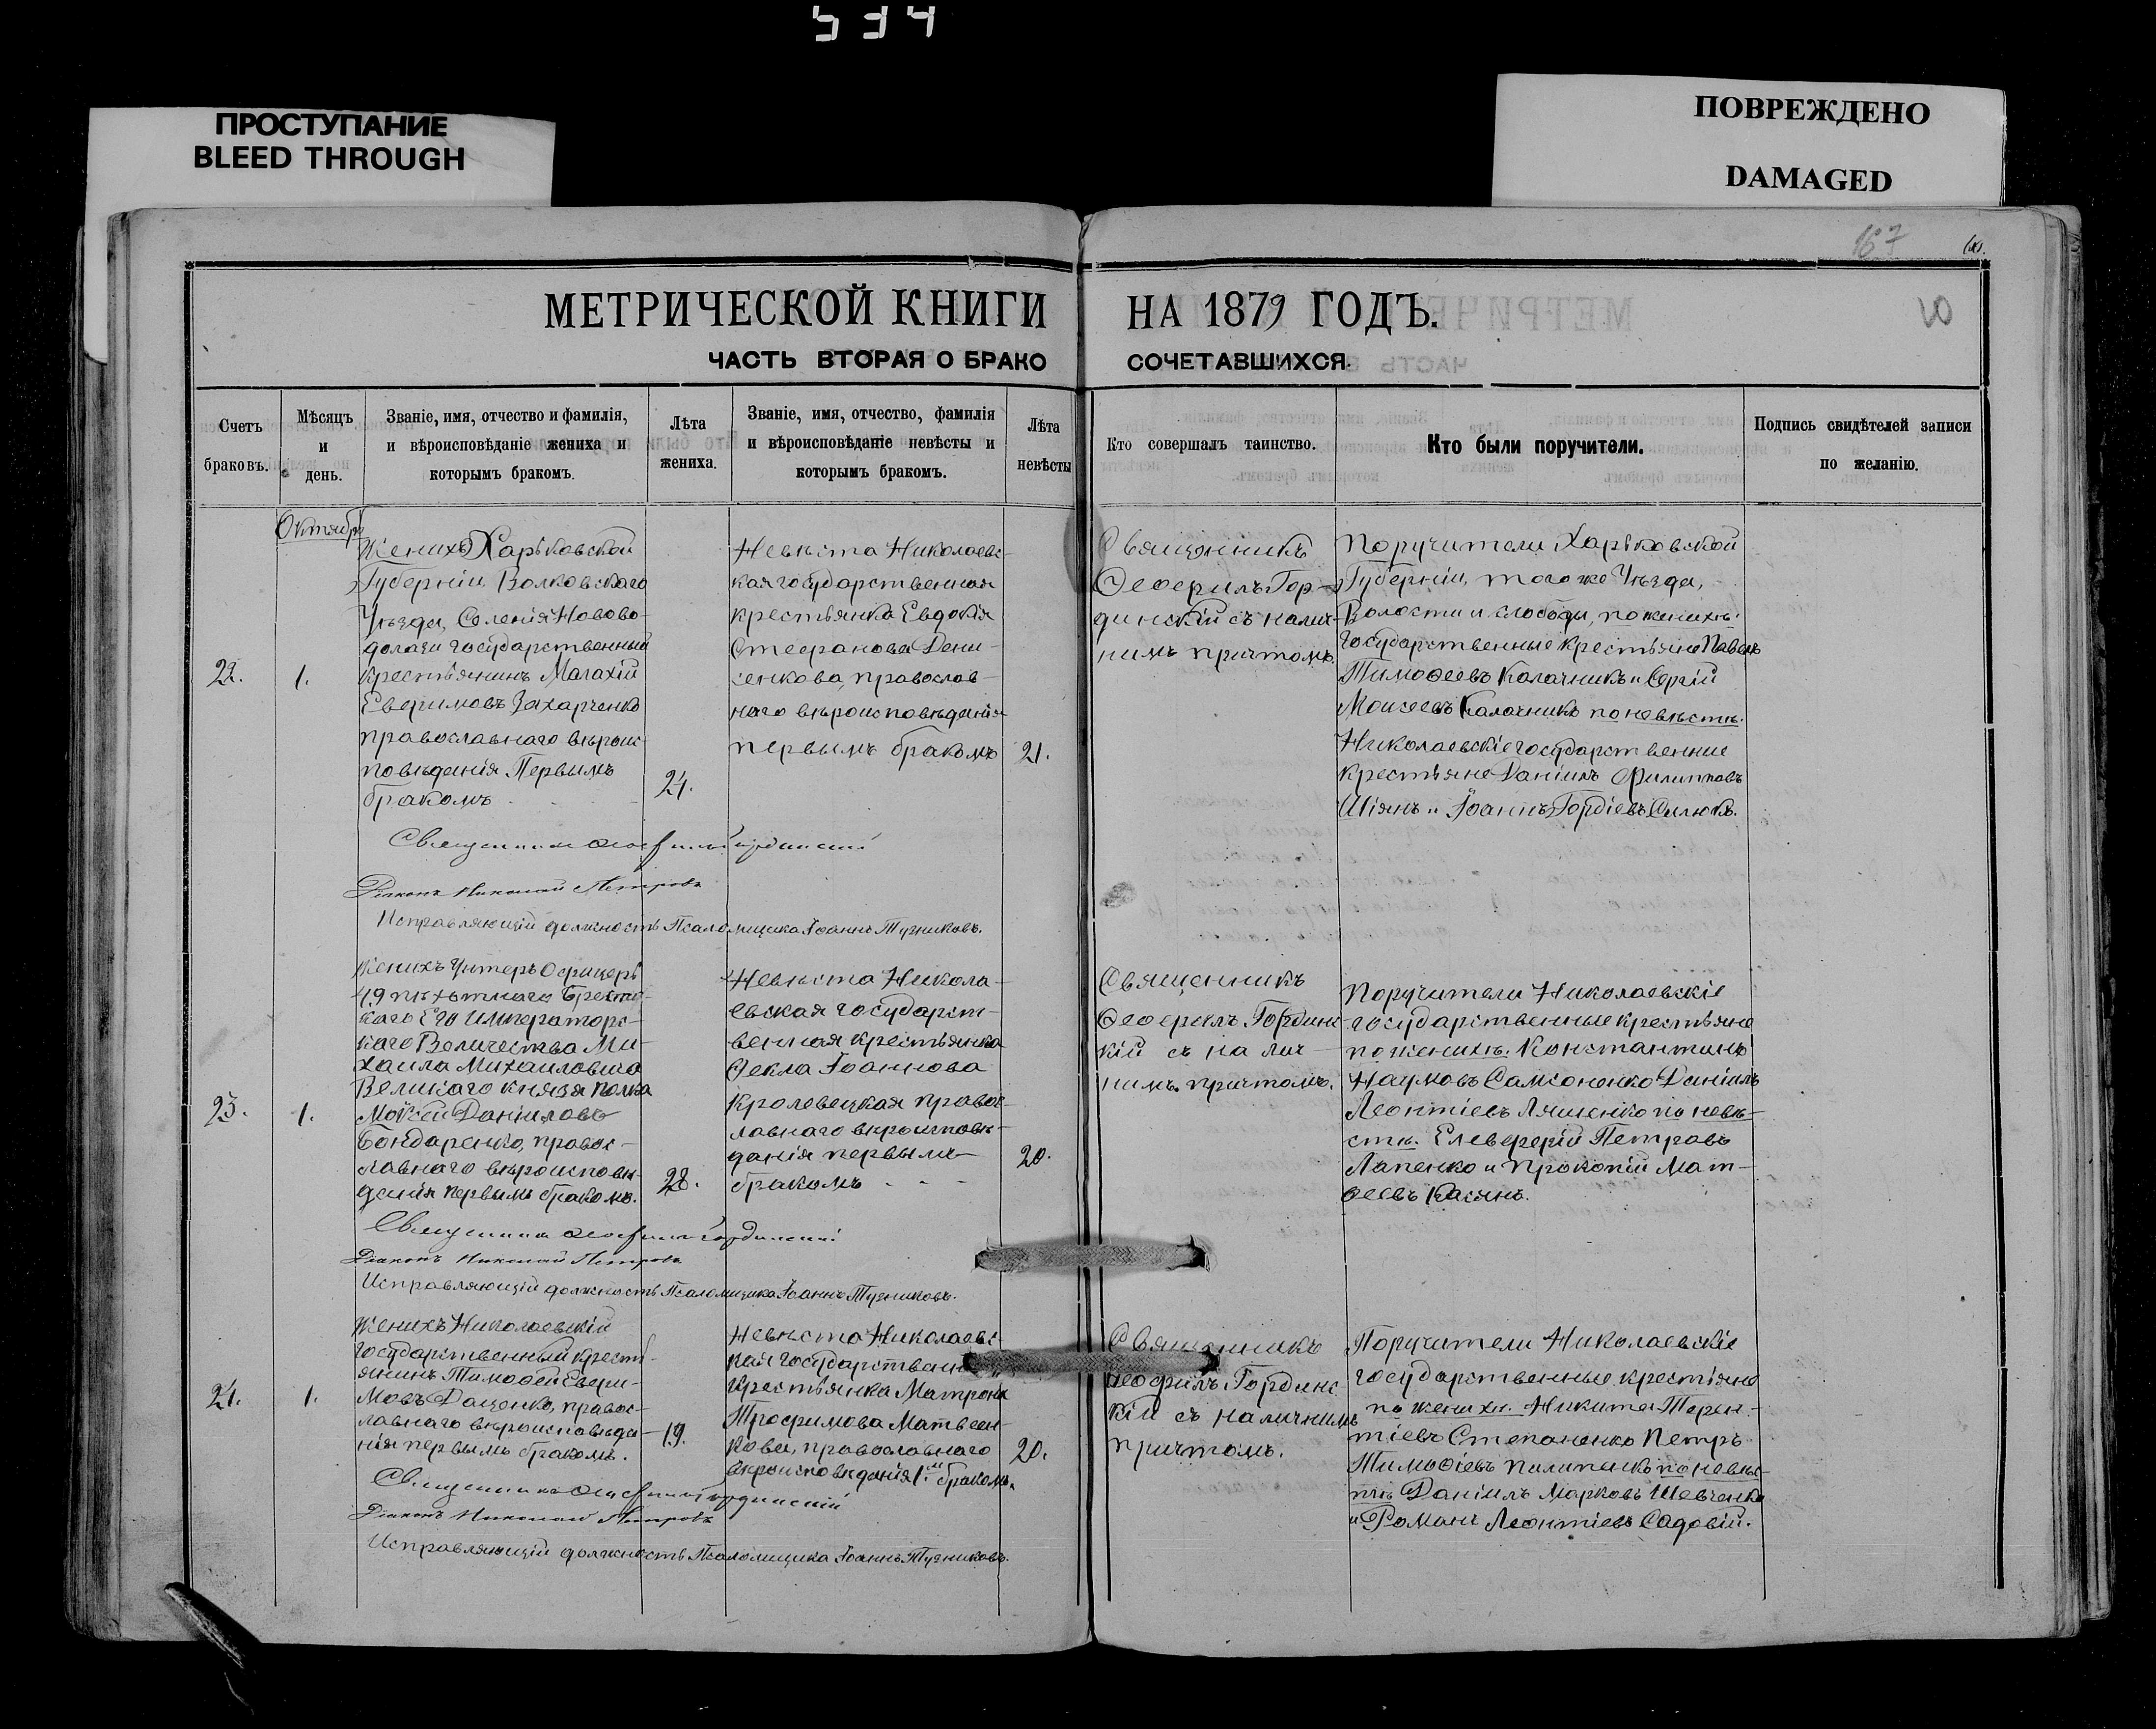 534
ПРОСТУПАНИЕ
BLEED THROUGH
ПОВРЕЖДЕНО
DAMAGED
167
60.
МЕТРИЧЕСКОЙ КНИГИ НА 1879 ГОДЪ.
ЧАСТЬ ВТОРАЯ О БРАКОСОЧЕТАВШИХСЯ.
Счетъ
браковъ.
Мѣсяцъ
и
день.
Званіе, имя, отчество и фамилія,
и вѣроисповѣданіе жениха и
которымъ бракомъ.
Лѣта
жениха.
Званіе, имя, отчество, фамилія
и вѣроисповѣданіе невѣсты и
которымъ бракомъ.
Лѣта
невѣсты
Кто совершалъ таинство.
Кто были поручители.
Подпись свидѣтелей записи
по желанію.
Октябрь
22.
1.
Женихъ Харьковской
Губерніи Волковскаго
Уѣзда, Селенія Новово-
долаги государственный
крестьянинъ Малахій
Евфимовъ Захарченко
православнаго вѣроис-
повѣданія Первымъ
бракомъ
24.
Невѣста Николаевс-
кая государственная
крестьянка Евдокія
Стефанова Дени-
сенкова, православ-
наго вѣроисповѣданія
первымъ бракомъ
21.
Священникъ
Ѳеофилъ Гор-
динскій съ налич-
нимъ притомъ.
Поручители Харьковской
Губерніи, того же Уѣзда,
Волости и слободы, по женихѣ:
государственные крестьяне Павелъ
Тимоѳеевъ Калачникъ и Сергій
Моисеевъ Калачникъ по невѣстѣ:
Николаевскіе государственние
крестьяне Даніилъ Филипповъ
и Іоаннъ Гордіевъ
Священникъ Ѳеофилъ Гординскій
Діаконъ Николай Петровъ
Исправляющій должность Псаломщика Іоаннъ Тузниковъ.
23.
1.
Женихъ Унтеръ Офицеръ
49 пѣхотнаго Брестс-
каго Его Императорс-
каго Величества Ми-
хаила Михаиловича
Великаго князя Полка
Мокій Даниловъ
Бондаренко, правос-
лавнаго вѣроисповѣ-
данія первымъ бракомъ.
28.
Невѣста Никола-
евская государст-
венная крестьянка
Ѳекла Іоаннова
Кролевецкая правос-
лавнаго вѣроисповѣ-
данія первымъ
бракомъ
20.
Священникъ
Ѳеофилъ Гординс-
кій съ налич-
нимъ притомъ.
Поручители Николаевскіе
государственные крестьяне
по женихѣ. Константинъ
Наумовъ Самсоненко Даніилъ
Леонтіевъ Ляшенко по невѣ-
стѣ. Елевферій Петровъ
Лапенко и Прокопій Мат-
ѳеевъ Касянъ.
Священникъ Ѳеофилъ Гординскій
Діаконъ Николай Петровъ
Исправляющій должность Псаломщика Іоаннъ Тузниковъ.
24.
1.
Женихъ Николаевскій
государственный кресть-
янинъ Тимоѳей Евфи-
мовъ Даценко, правос-
лавнаго вѣроисповѣда-
нія первымъ бракомъ.
19.
Невѣста Николаевс-
кая государственная
крестьянка Матрона
Трофимова Матвеен-
кова, православнаго
вѣроисповѣданія 1.м бракомъ.
20.
Священникъ
Ѳеофилъ Гординс-
кій съ наличнимъ
притомъ.
Поручители Николаевскіе
государственные крестьяне
по женихѣ. Никита Терен-
тіевъ Степаненко Петръ
Тимоѳіевъ по невѣс-
тѣ Даніилъ Марковъ Шевченко
и Романъ Леонтіевъ Садовій.
Священникъ Ѳеофилъ Гординскій
Діаконъ Николай Петровъ
Исправляющій должность Псаломщика Іоаннъ Тузниковъ.